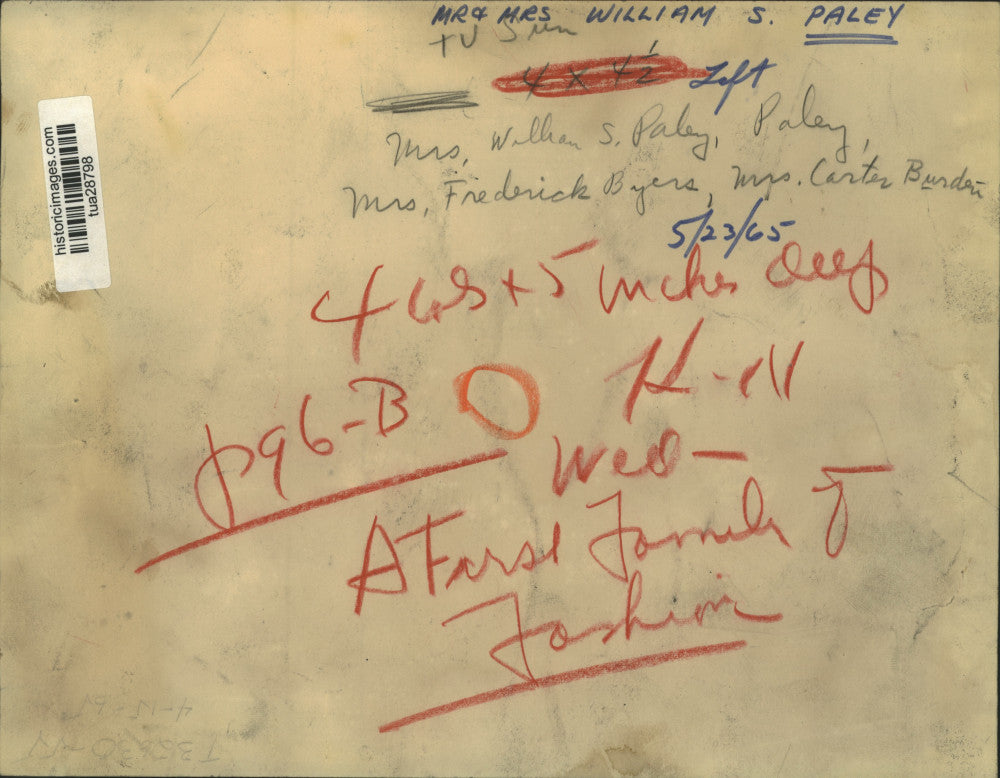 MR & MRS WILLIAM S. PALEY
TV Sun
4 x 4 1/2 Left
Mrs. William S. Paley, Paley,
Mrs. Frederick Byers, Mrs. Carter Burden
5/23/65
historicimages.com
tua28798
4 cols x 5 inches deep
K-111
pg6-B
Wed-
A First Family of
Fashion